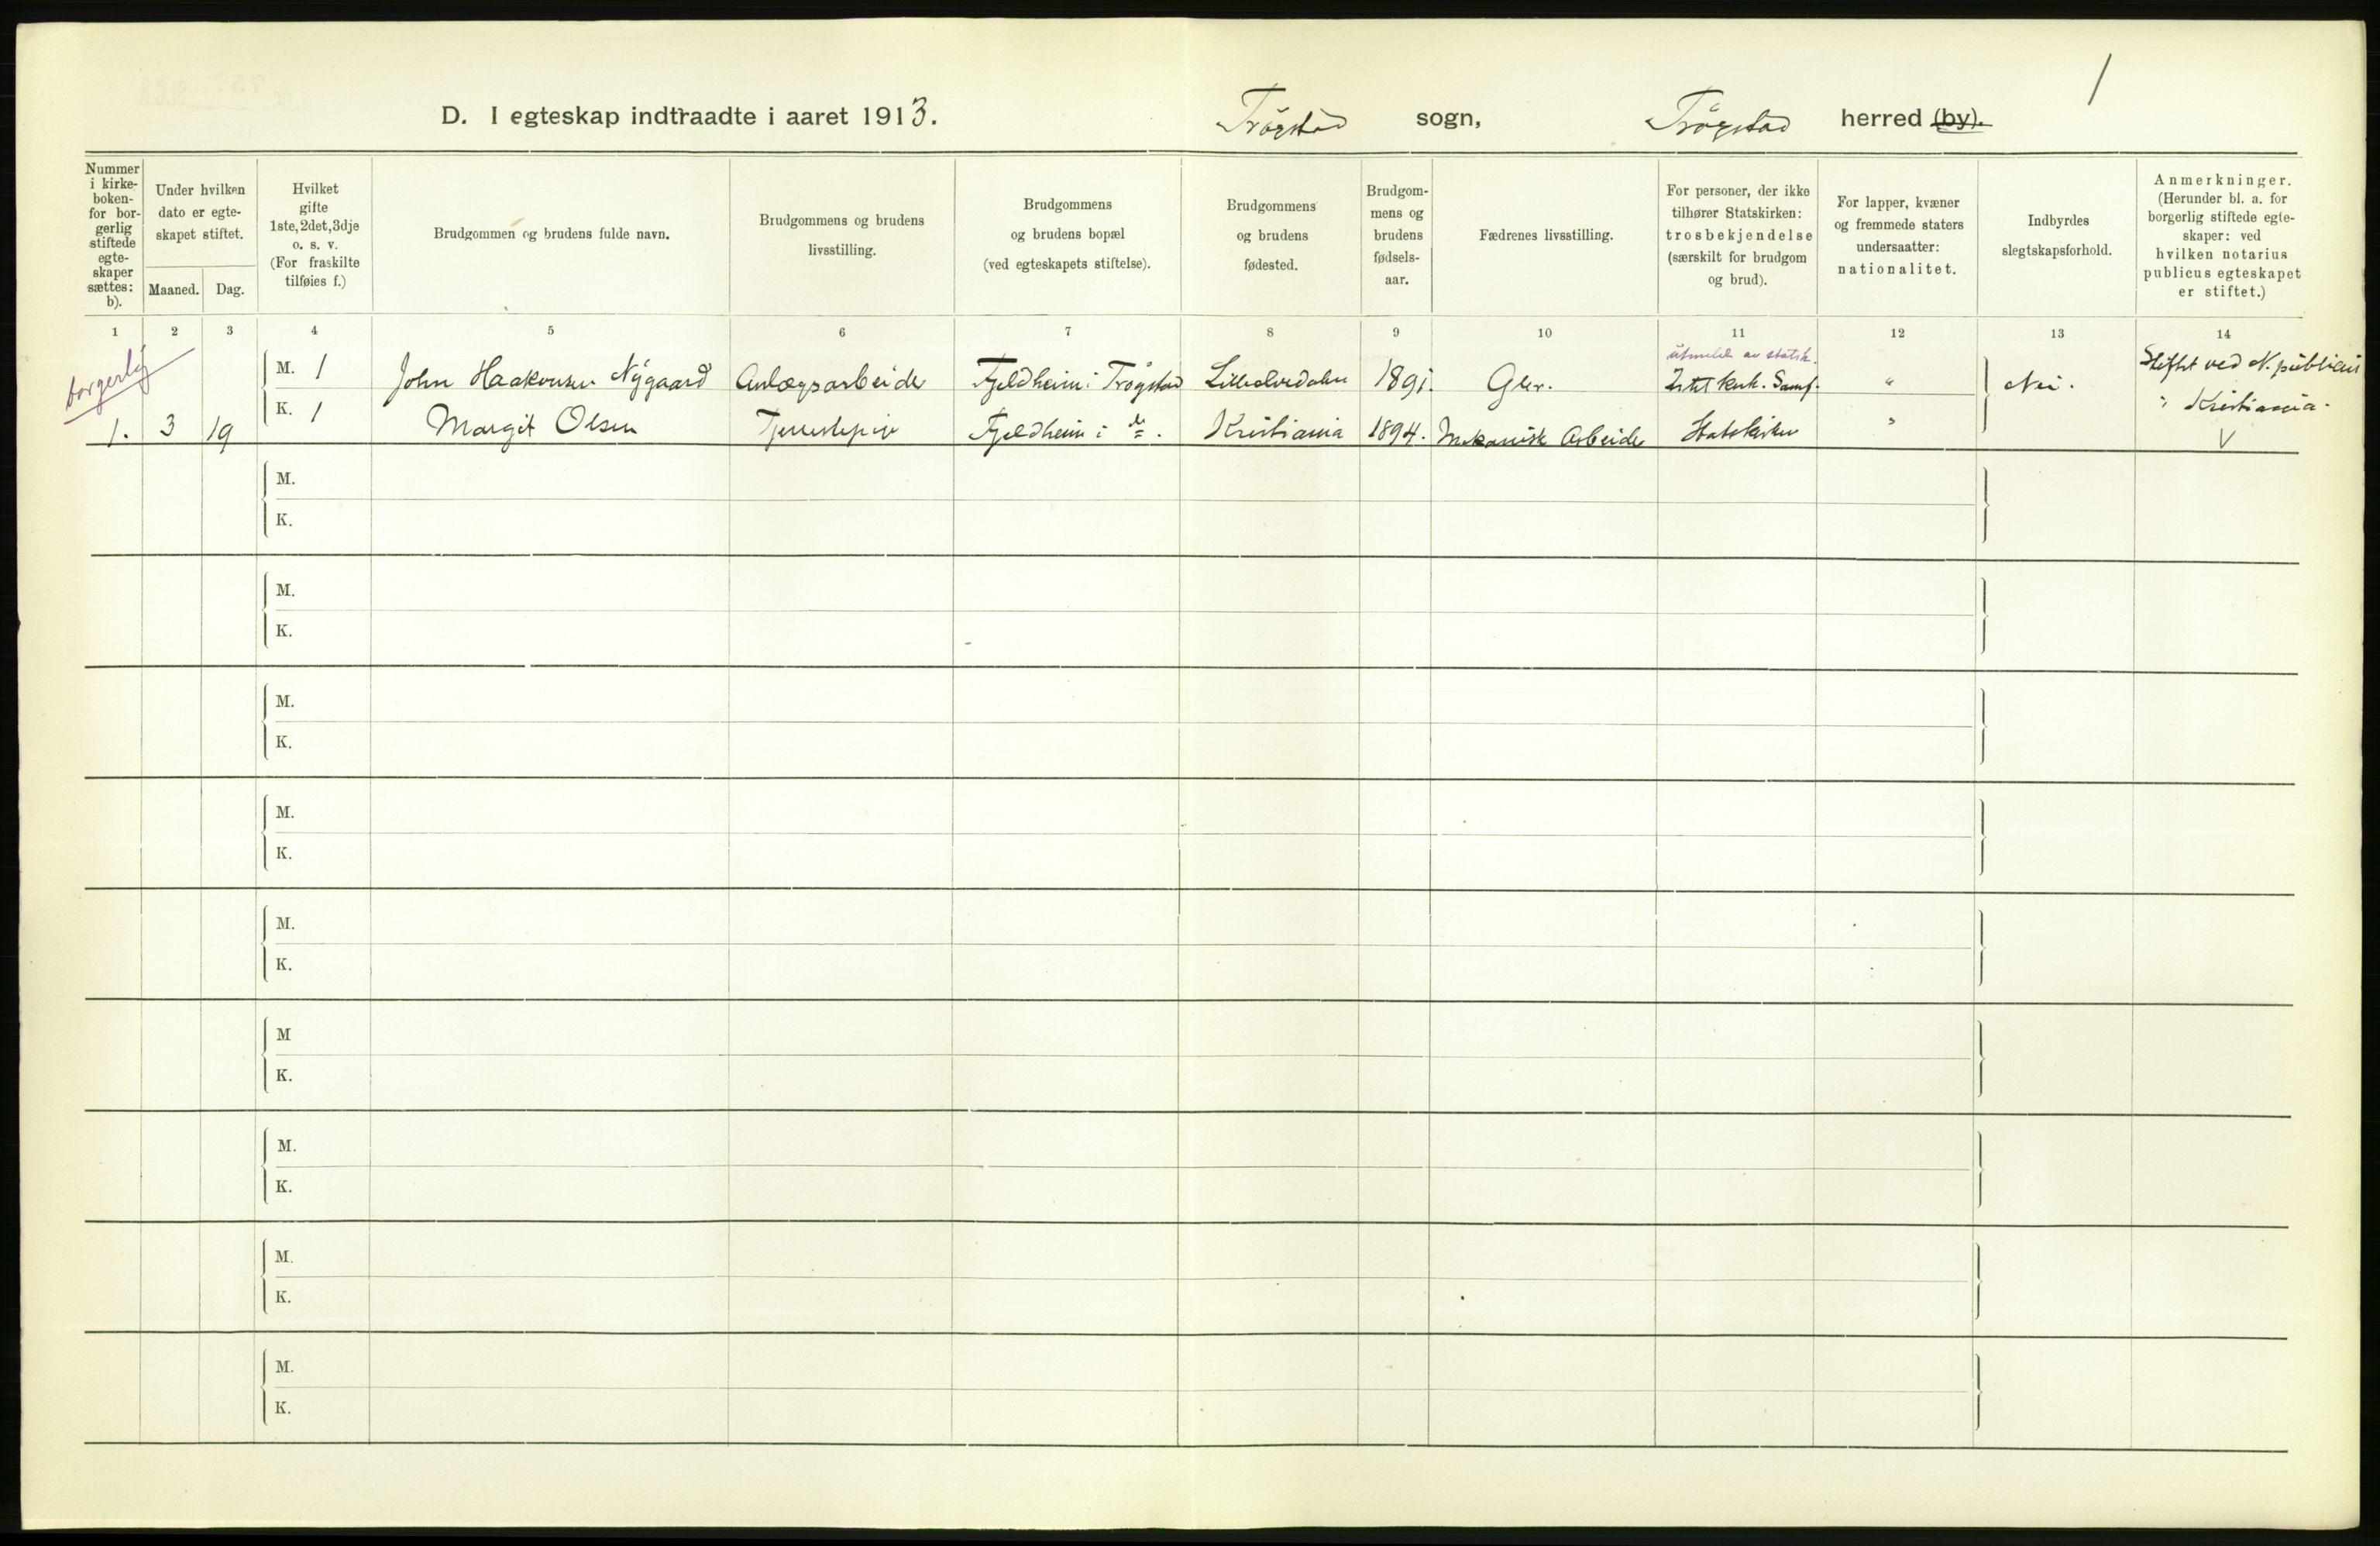 1
D. I egteskap indtraadte i aaret 1913. Trögstad sogn, Trögstad herred (by).
Nummer i kirke- boken- for bor- gerlig stiftede egte- skaper sættes: b).
Under hvilken dato er egte- skapet stiftet.
Maaned. Dag.
Hvilket gifte 1ste, 2det, 3dje o. s. v. (For fraskilte tilføies f.)
Brudgommen og brudens fulde navn.
Brudgommens og brudens livsstilling.
Brudgommens og brudens bopæl (ved egteskapets stiftelse).
Brudgommens og brudens fødested.
Brudgom- mens og brudens fødsels- aar.
Fædrenes livsstilling.
For personer, der ikke tilhører Statskirken: trosbekjendelse (særskilt for brudgom og brud).
For lapper, kvæner og fremmede staters undersaatter: nationalitet.
Indbyrdes slegtskapsforhold.
Anmerkninger. (Herunder bl. a. for borgerlig stiftede egte- skaper: ved hvilken notarius publicus egteskapet er stiftet.)
1 2 3 4 5 6 7 8 9 10 11 12 13 14
borgerlig
utmeldt av statsk.
M. 1 John Haakonsen Nÿgaard Anlægsarbeider Fjeldheim i Trögstad Lilleelvedalen 1891. Gbr. " Nei. Stiftet ved N. publicus
i Kristiania.
1. 3 19 K. 1 Margit Olsen Tjenestepige Fjeldheim i do. Kristiania 1894. Mekanisk Arbeider Statskirken " V
M.
K.
M.
K.
M.
K.
M.
K.
M.
K.
M
K.
M.
K.
M.
K.
M.
K.